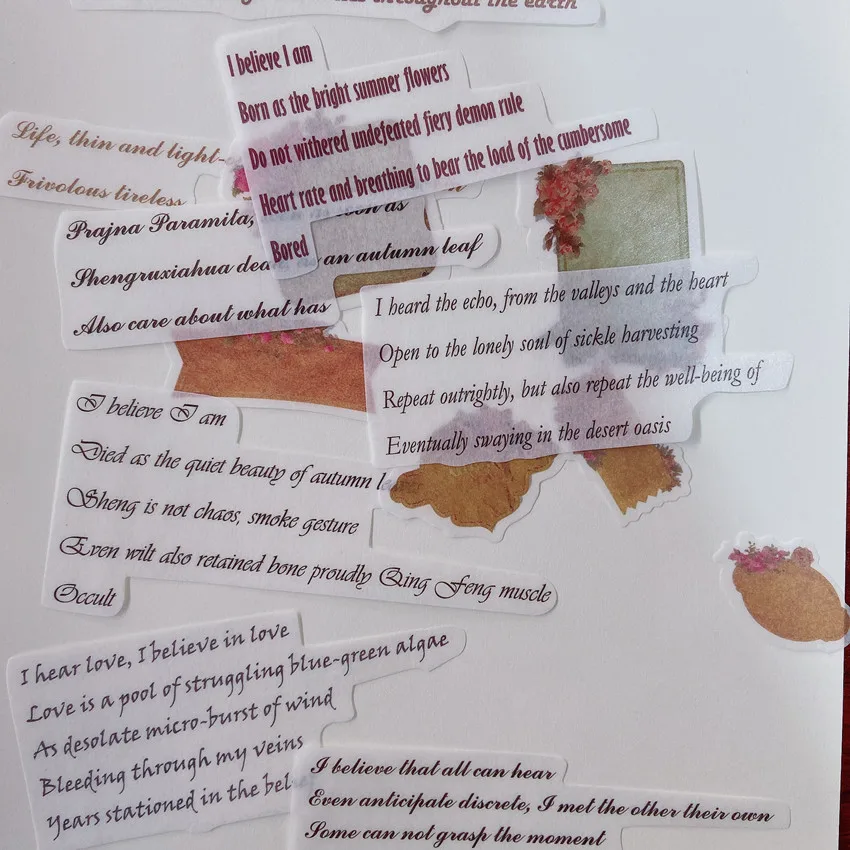 throughout the earth
I believe I am
Born as the bright summer flowers
Do not withered undefeated fiery demon rule
Heart rate and breathing to bear the load of the cumbersome
Bored
Life, thin and light-
Frivolous tireless
Prajna Paramita, soon as
Shengruxiahua dea an autumn leaf
Also care about what has
I heard the echo, from the valleys and the heart
Open to the lonely soul of sickle harvesting
Repeat outrightly, but also repeat the well-being of
Eventually swaying in the desert oasis
I believe I am
Died as the quiet beauty of autumn l
Sheng is not chaos, smoke gesture
Even wilt also retained bone proudly Qing Feng muscle
Occult
I hear love, I believe in love
Love is a pool of struggling blue-green algae
As desolate micro-burst of wind
Bleeding through my veins
Years stationed in the bel
I believe that all can hear
Even anticipate discrete, I met the other their own
Some can not grasp the moment